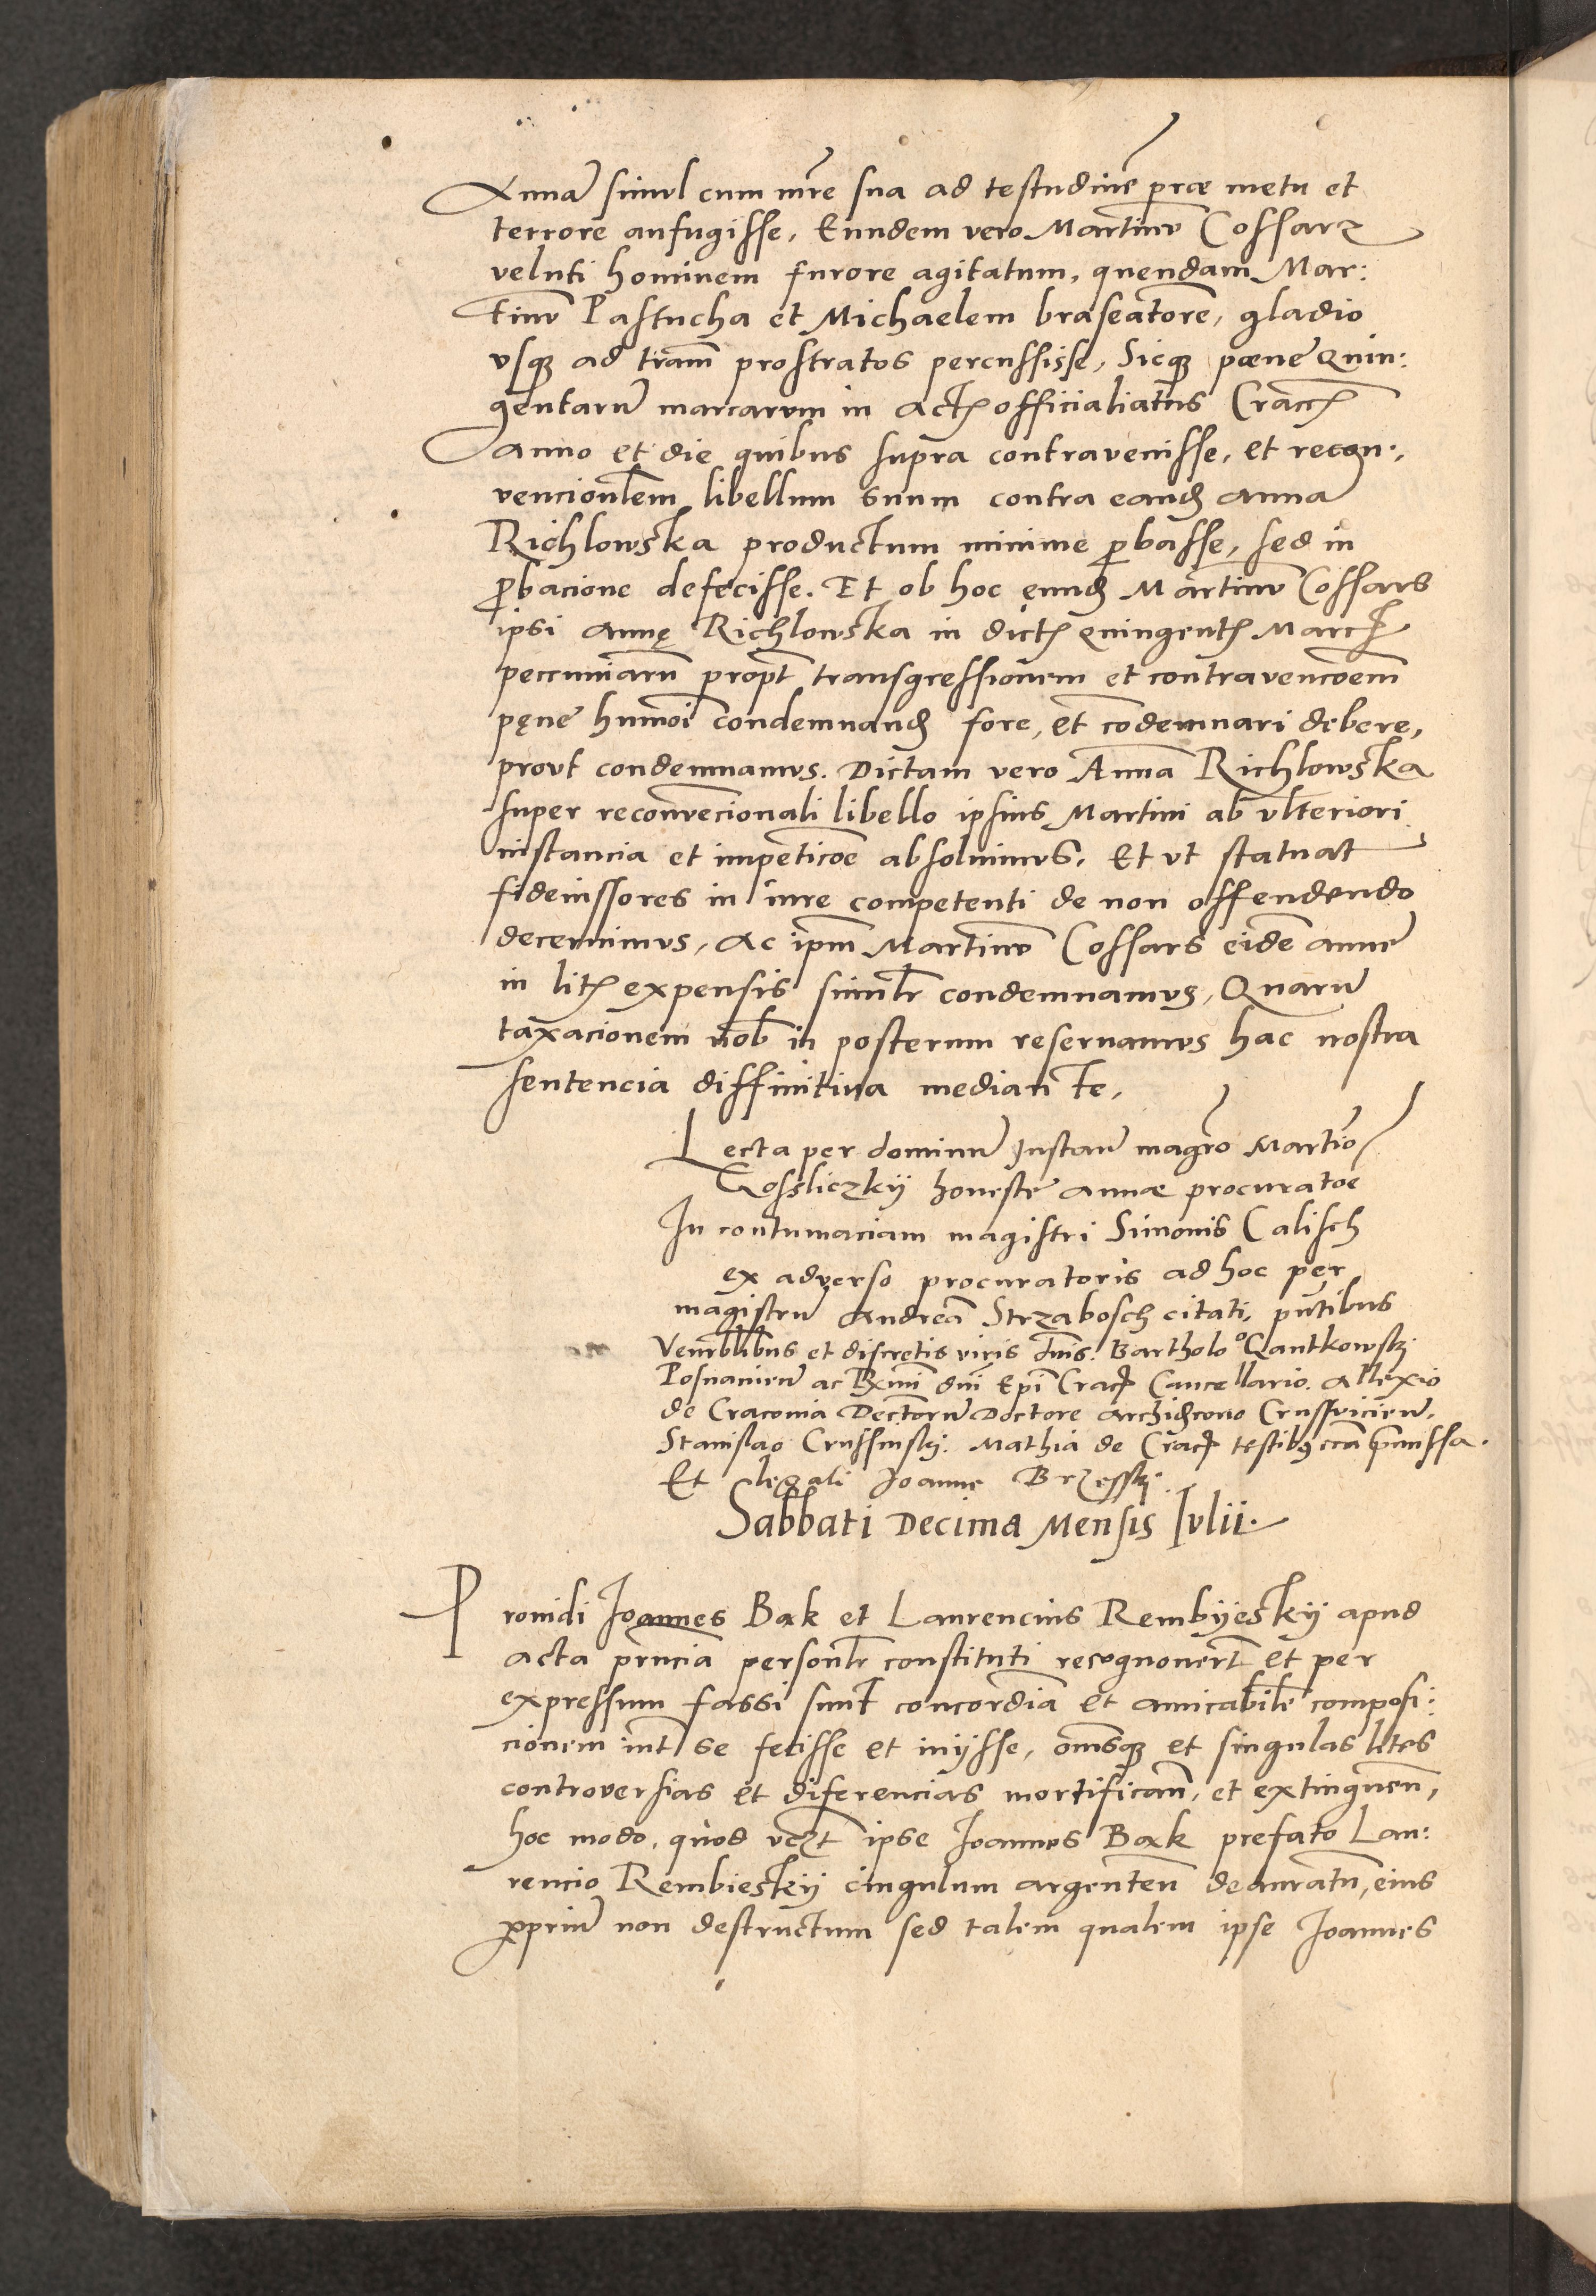 Annā simul cum mr̄e sua ad testudinē prae metu et
terrore aufugisse, Eundem vero Martinū Cossarz
veluti hominem furore agitatum, quendam Mar:
tinū Pastucha et Michaelem braseatorē, gladio
vsqꝫ ad trām prostratos percussisse, Sicqꝫ poene Quin:
gentarū marcarum in actꝭ officialiatus Craccꝭ
anno et die quibus supra contravenisse, et recon:,
vencionlēm libellum suum contra eandꝫ annā
Richlowska productum minime ꝓbasse, sed in
ꝓbacione defecisse. Et ob hoc eundꝫ Martinū Cossars
ipsi annę Richlowska in dictꝭ quingentꝭ Marcꝭ
peccuniarū propt̄ transgressionem et contravencōem
pęnē hmōi condemnandꝫ fore, et cōdemnari debere,
prout condemnamus. Dictam vero Annā Richlowska
super reconvēcionali libello ipsius Martini ab vlteriori
instancia et impeticōe absoluimus. Et vt statuat
fideiussores in iure competenti de non offendendo
decernimus, Ac ipm̄ Martinū Cossars eidē anne
in litꝭ expensis simlr̄ condemnamus, Quarū
taxacionem nob̄ in posterum reseruamus hac nostra
sentencia diffinitiua mediante,
Lecta per dominū Instan̄ magr̄o Martīo
Gosliczkÿ honeste annae procuratoe
In contumaciam magistri Simonis Calisch
ex adverso procuratoris ad hoc per
magistrū Andreā Strzabosch citati, pn̄tibus
Venerblībus et discretis viris dnīs. Bartholo⁰ Gantkowskj
Posnanien̄ ac Rm̄i dnī Epī Cracꝭ Cancellario. Allexio
de Craconia Decretorū Doctore Archidꝫcono Crusfvicien̄.
Stanislao Crussinskj. Mathia de Cracꝭ testibꝰ cca p̄missa.
Et legali Joanne Brzesskj.
Sabbati Decima Mensis Iulii.
Prouidi Joannes Bak et Laurencius Rembÿeskÿ apud
acta prn̄cia personlr̄ constituti recognouerūt et per
expressum fassi sunt concordiā et amicabilē composi:
cionem int̄ se fecisse et inÿsse, omēsqꝫ et singulas lites
controversias et diferencias mortificass̄, et extinguen̄,
hoc modo, quod vcꝫt ipse Joannes Bak prefato Lau:
rencio Rembieskÿ cingulum argenteū deauratū, eius
ꝓpriū non destructum sed talem qualem ipse Joannes